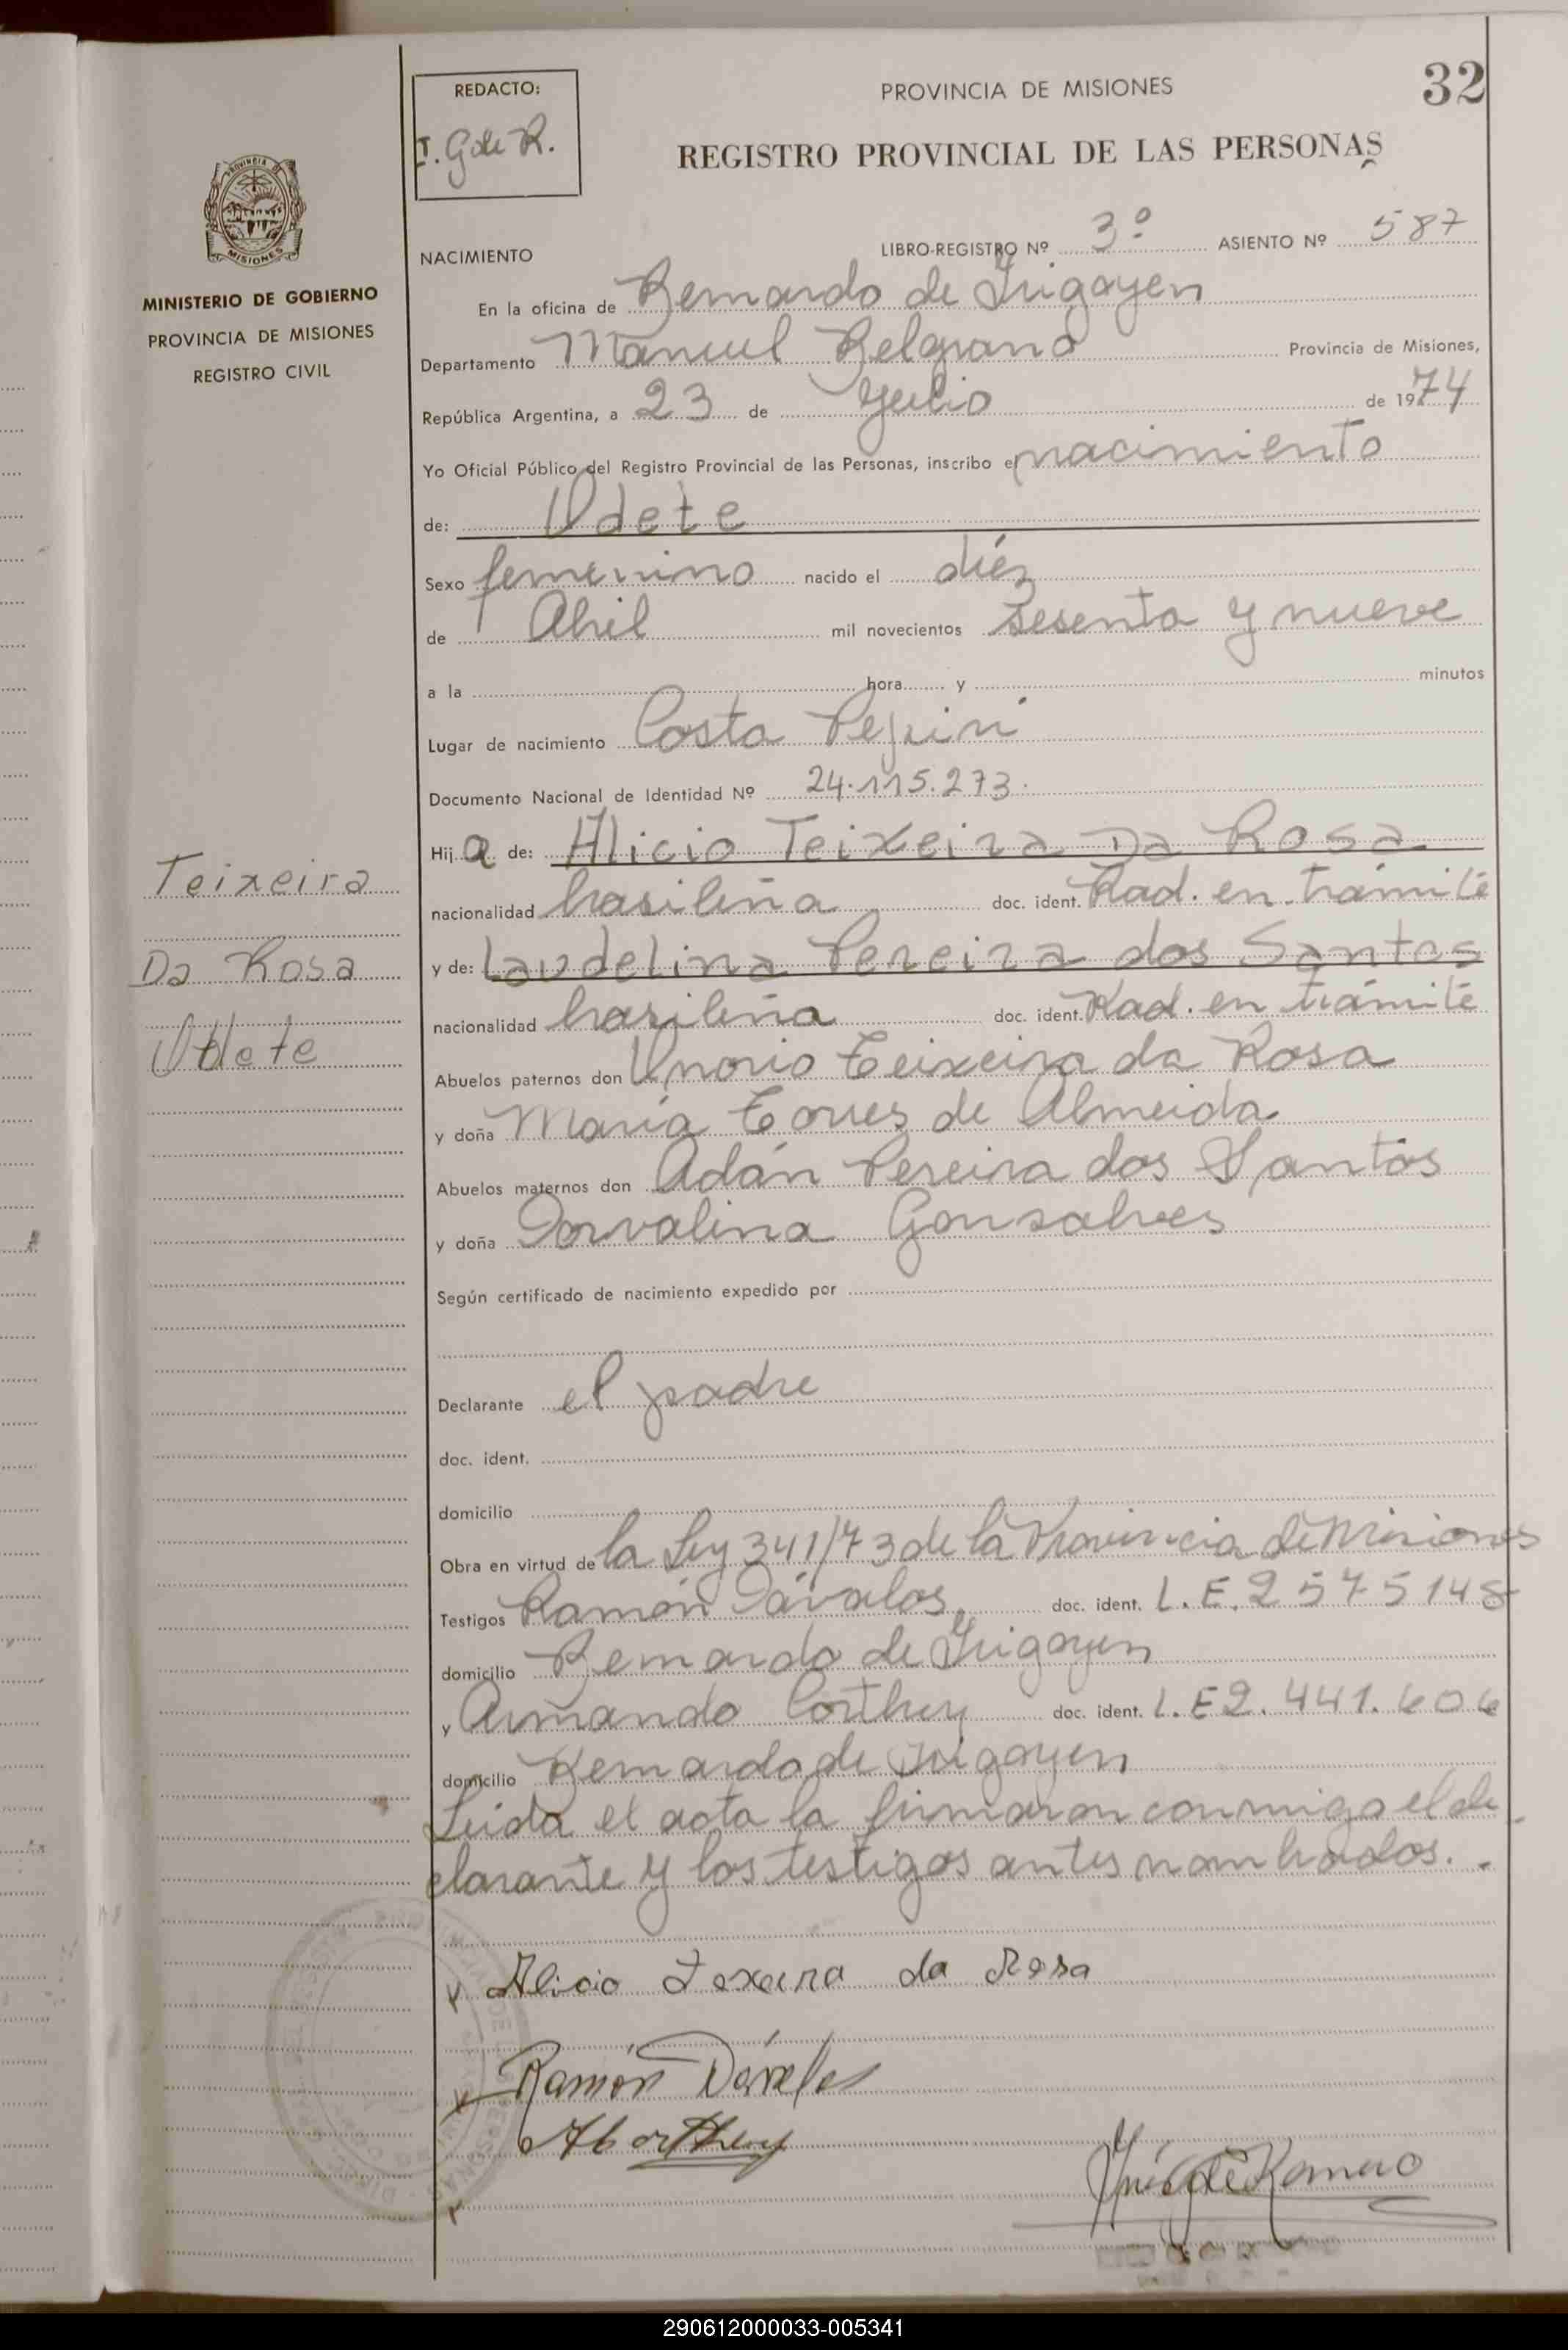 32
REDACTO:
I. G de R.
PROVINCIA DE MISIONES
REGISTRO PROVINCIAL DE LAS PERSONAS
PROVINCIA
MISIONES
MINISTERIO DE GOBIERNO
PROVINCIA DE MISIONES
REGISTRO CIVIL
NACIMIENTO LIBRO-REGISTRO Nº 3º ASIENTO Nº 587
En la oficina de Bernardo de Irigoyen
Departamento Manuel Belgrano Provincia de Misiones,
República Argentina, a 23 de Julio de 1974
Yo Oficial Público del Registro Provincial de las Personas, inscribo el nacimiento
de: Odete
Sexo femenino nacido el diéz
de Abril mil novecientos sesenta y nueve
a la hora y minutos
Lugar de nacimiento Costa Pepirí
Documento Nacional de Identidad Nº 24.115.273.
Hija de: Alicio Teixeira Da Rosa
nacionalidad brasileña doc. ident. Rad. en trámite
y de: Laudelina Pereira dos Santos
nacionalidad brasileña doc. ident. Rad. en trámite
Teixeira
Da Rosa
Odete
Abuelos paternos don Onorio Teixeira da Rosa
y doña María Torres de Almeida
Abuelos maternos don Adán Pereira dos Santos
y doña Dorvalina Gonsalves
Según certificado de nacimiento expedido por
Declarante el padre
doc. ident.
domicilio
Obra en virtud de la Ley 341/73 de la Provincia de Misiones
Testigos Ramón Dávalos doc. ident. L.E. 2575148
domicilio Bernardo de Irigoyen
y Armando Corthey doc. ident. L.E 2.441.606
domicilio Bernardo de Irigoyen
Leida el acta la firmaron conmigo el de
clarante y los testigos antes nombrados.
Alicio Texeira da Rosa
Ramón Dávalos
ACorthey
Inés G de Romero
290612000033-005341